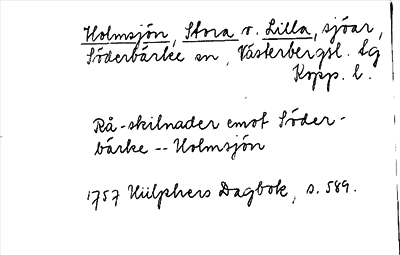 Holmsjön, Stora o. Lilla, sjöar,
Söderbärke sn, Västerbergsl. dg
Kopp. l.
Rå-skilnader emot Söder-
bärke -- Holmsjön
1757 Hülphers Dagbok, s. 589.